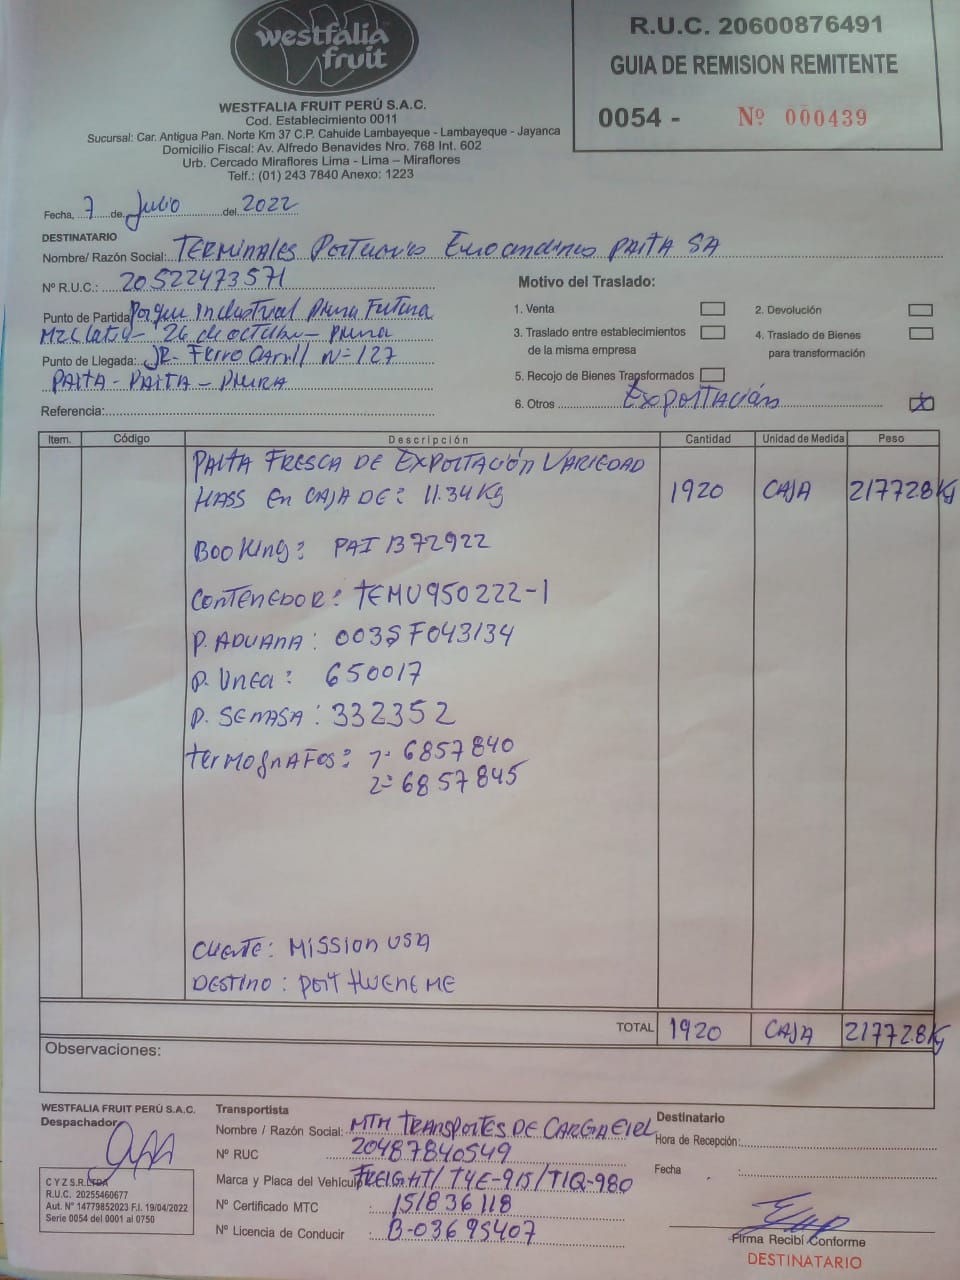 westfalia
fruit
WESTFALIA FRUIT PERÚ S.A.C.
Cod. Establecimiento 0011
Sucursal: Car. Antigua Pan. Norte Km 37 C.P. Cahuide Lambayeque - Lambayeque - Jayanca
Domicilio Fiscal: Av. Alfredo Benavides Nro. 768 Int. 602
Urb. Cercado Miraflores Lima - Lima – Miraflores
Telf.: (01) 243 7840 Anexo: 1223
R.U.C. 20600876491
GUIA DE REMISION REMITENTE
0054 - Nº 000439
Fecha, 7 de Julio del 2022
DESTINATARIO
Nombre/ Razón Social: TERMINALES PORTUARIOS Euroandinos PAITA SA
Nº R.U.C.: 20522473571
Punto de Partida Parque Industrial Piura Futura
26 de octubre - Piura
Punto de Llegada: JR- FERROCARRIL N=127
PAITA - PAITA - PIURA
Referencia:
Motivo del Traslado:
1. Venta
2. Devolución
3. Traslado entre establecimientos
de la misma empresa
4. Traslado de Bienes
para transformación
5. Recojo de Bienes Transformados
6. Otros Exportación X
Item. Código Descripción Cantidad Unidad de Medida Peso
PALTA FRESCA DE EXPORTACIÓN VARIEDAD
HASS EN CAJA DE: 11.34 Kg 1920 CAJA 21772.8 Kg
Booking: PAI1372922
CONTENEDOR: TEMU950222-1
P. ADUANA: 003SF043134
P. Linea: 650017
P. SENASA: 332352
TERMOGRAFOS: 1- 6857840
2= 6857845
CLIENTE: MISSION USA
DESTINO: PORT HUENEME
TOTAL 1920 CAJA 21772.8 Kg
Observaciones:
WESTFALIA FRUIT PERÚ S.A.C.
Despachador
C Y Z S.R.LTDA
R.U.C. 20255460677
Aut. Nº 14779852023 F.I. 19/04/2022
Serie 0054 del 0001 al 0750
Transportista
Nombre / Razón Social: MTM TRANSPORTES DE CARGA EIRL
Nº RUC 20487840549
Marca y Placa del Vehículo FREIGHT/ T4E-915/T1Q-980
Nº Certificado MTC : 151836118
Nº Licencia de Conducir : B-03695407
Destinatario
Hora de Recepción:
Fecha :
Firma Recibí Conforme
DESTINATARIO